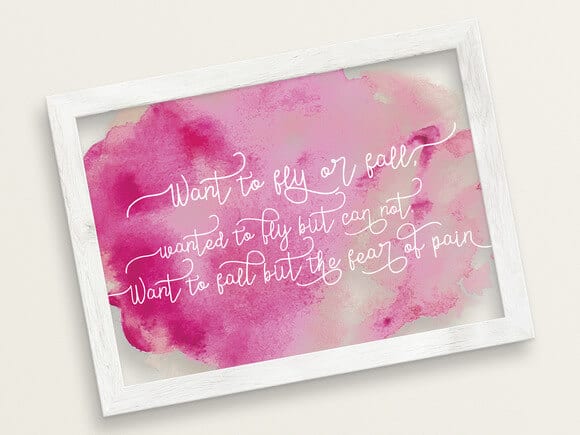 Want to fly or fall,
wanted to fly but can not
Want to fall but the fear of pain